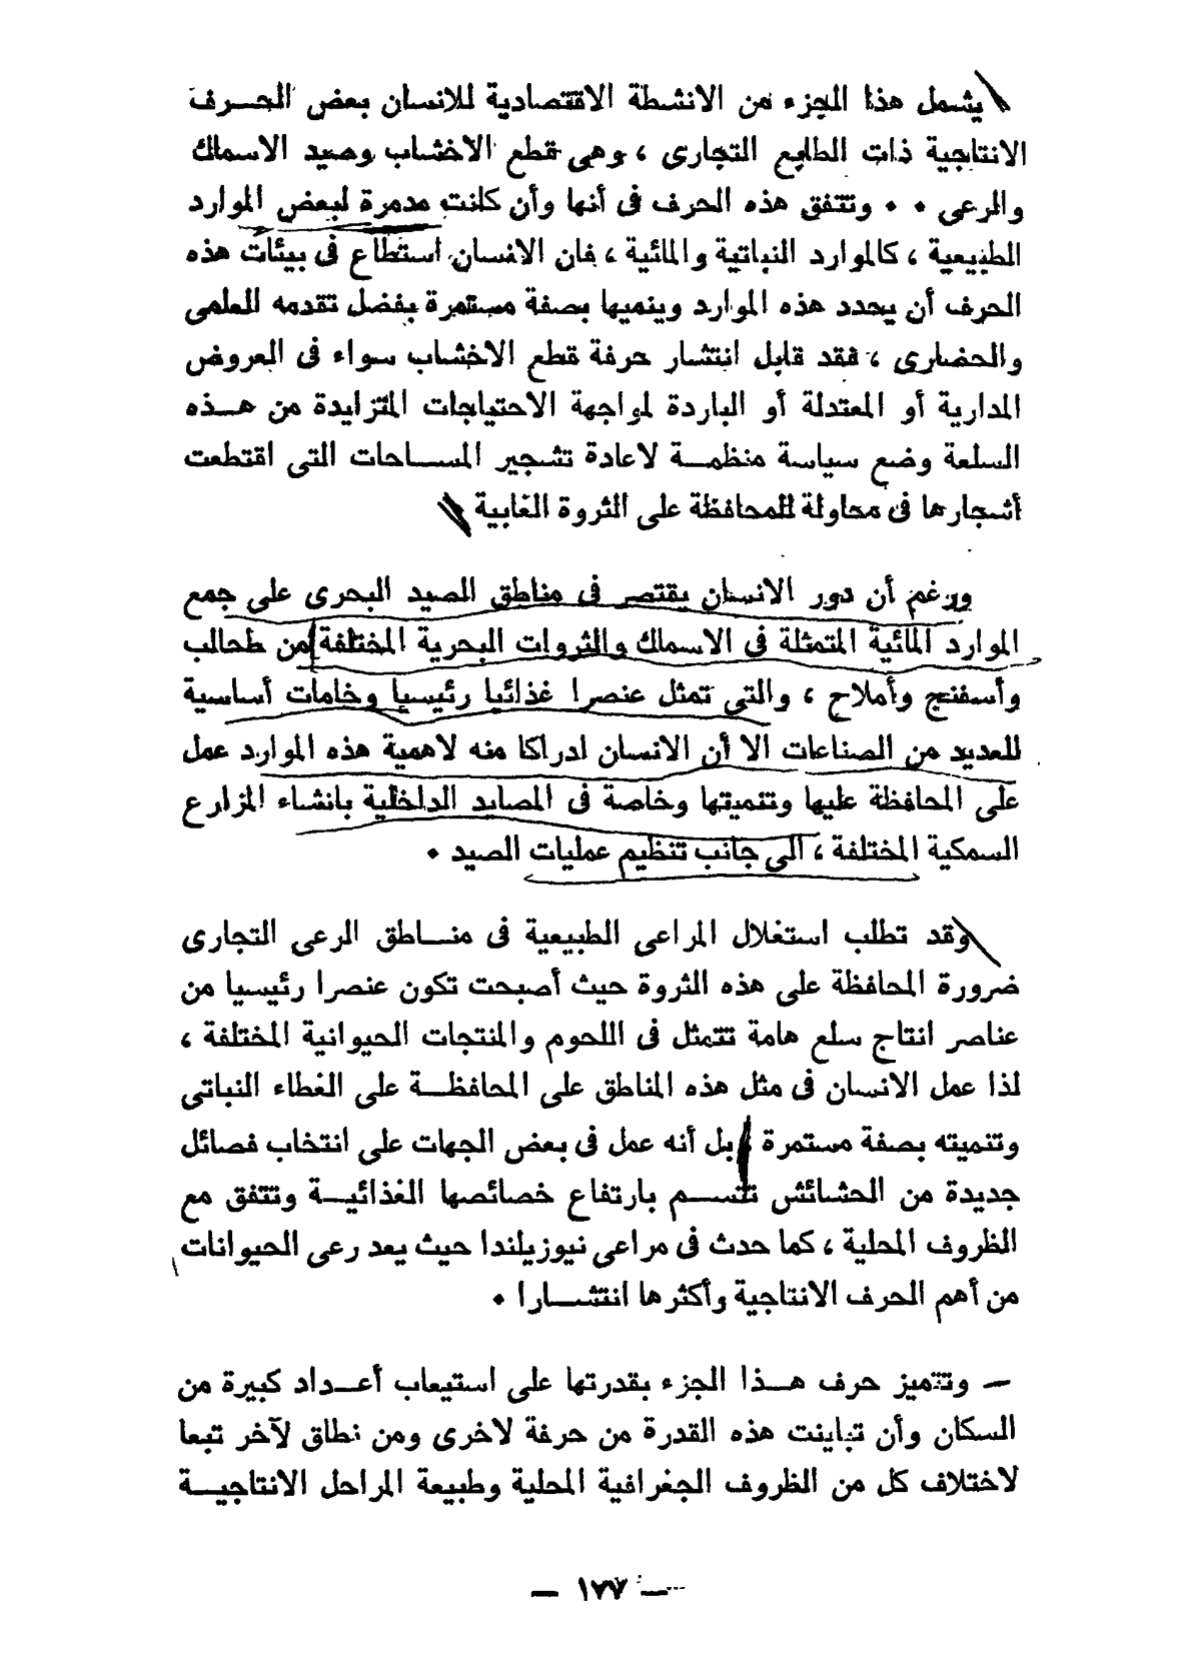 يشمل هذا الجزء من الانشطة الاقتصادية للانسان بعض الحـــرف
الانتاجية ذات الطابع التجارى ، وهى قطع الاخشاب وصيد الاسماك
والرعى ٠ ٠ وتتفق هذه الحرف فى أنها وأن كانت مدمرة لبعض الموارد
الطبيعية ، كالموارد النباتية والمائية ، فان الانسان استطاع فى بيئات هذه
الحرف أن يجدد هذه الموارد وينميها بصفة مستمرة بفضل تقدمه العلمى
والحضارى ، فقد قابل انتشار حرفة قطع الاخشاب سواء فى العروض
المدارية أو المعتدلة أو الباردة لمواجهة الاحتياجات المتزايدة من هـــذه
السلعة وضع سياسة منظمـــة لاعادة تشجير المســـاحات التى اقتطعت
أشجارها فى محاولة للمحافظة على الثروة الغابية
ورغم أن دور الانسان يقتصر فى مناطق الصيد البحرى على جمع
الموارد المائية المتمثلة فى الاسماك والثروات البحرية المختلفة من طحالب
وأسفنج وأملاح ، والتى تمثل عنصرا غذائيا رئيسيا وخامات أساسية
للعديد من الصناعات الا أن الانسان ادراكا منه لاهمية هذه الموارد عمل
على المحافظة عليها وتنميتها وخاصة فى المصايد الداخلية بانشاء المزارع
السمكية المختلفة ، الى جانب تنظيم عمليات الصيد ٠
وقد تطلب استغلال المراعى الطبيعية فى منـــاطق الرعى التجارى
ضرورة المحافظة على هذه الثروة حيث أصبحت تكون عنصرا رئيسيا من
عناصر انتاج سلع هامة تتمثل فى اللحوم والمنتجات الحيوانية المختلفة ،
لذا عمل الانسان فى مثل هذه المناطق على المحافظـــة على الغطاء النباتى
وتنميته بصفة مستمرة بل أنه عمل فى بعض الجهات على انتخاب فصائل
جديدة من الحشائش تتســـم بارتفاع خصائصها الغذائيـــة وتتفق مع
الظروف المحلية ، كما حدث فى مراعى نيوزيلندا حيث يعد رعى الحيوانات
من أهم الحرف الانتاجية وأكثرها انتشـــارا ٠
— وتتميز حرف هـــذا الجزء بقدرتها على استيعاب أعـــداد كبيرة من
السكان وأن تباينت هذه القدرة من حرفة لاخرى ومن نطاق لآخر تبعا
لاختلاف كل من الظروف الجغرافية المحلية وطبيعة المراحل الانتاجيـــة
— ١٧٧ —